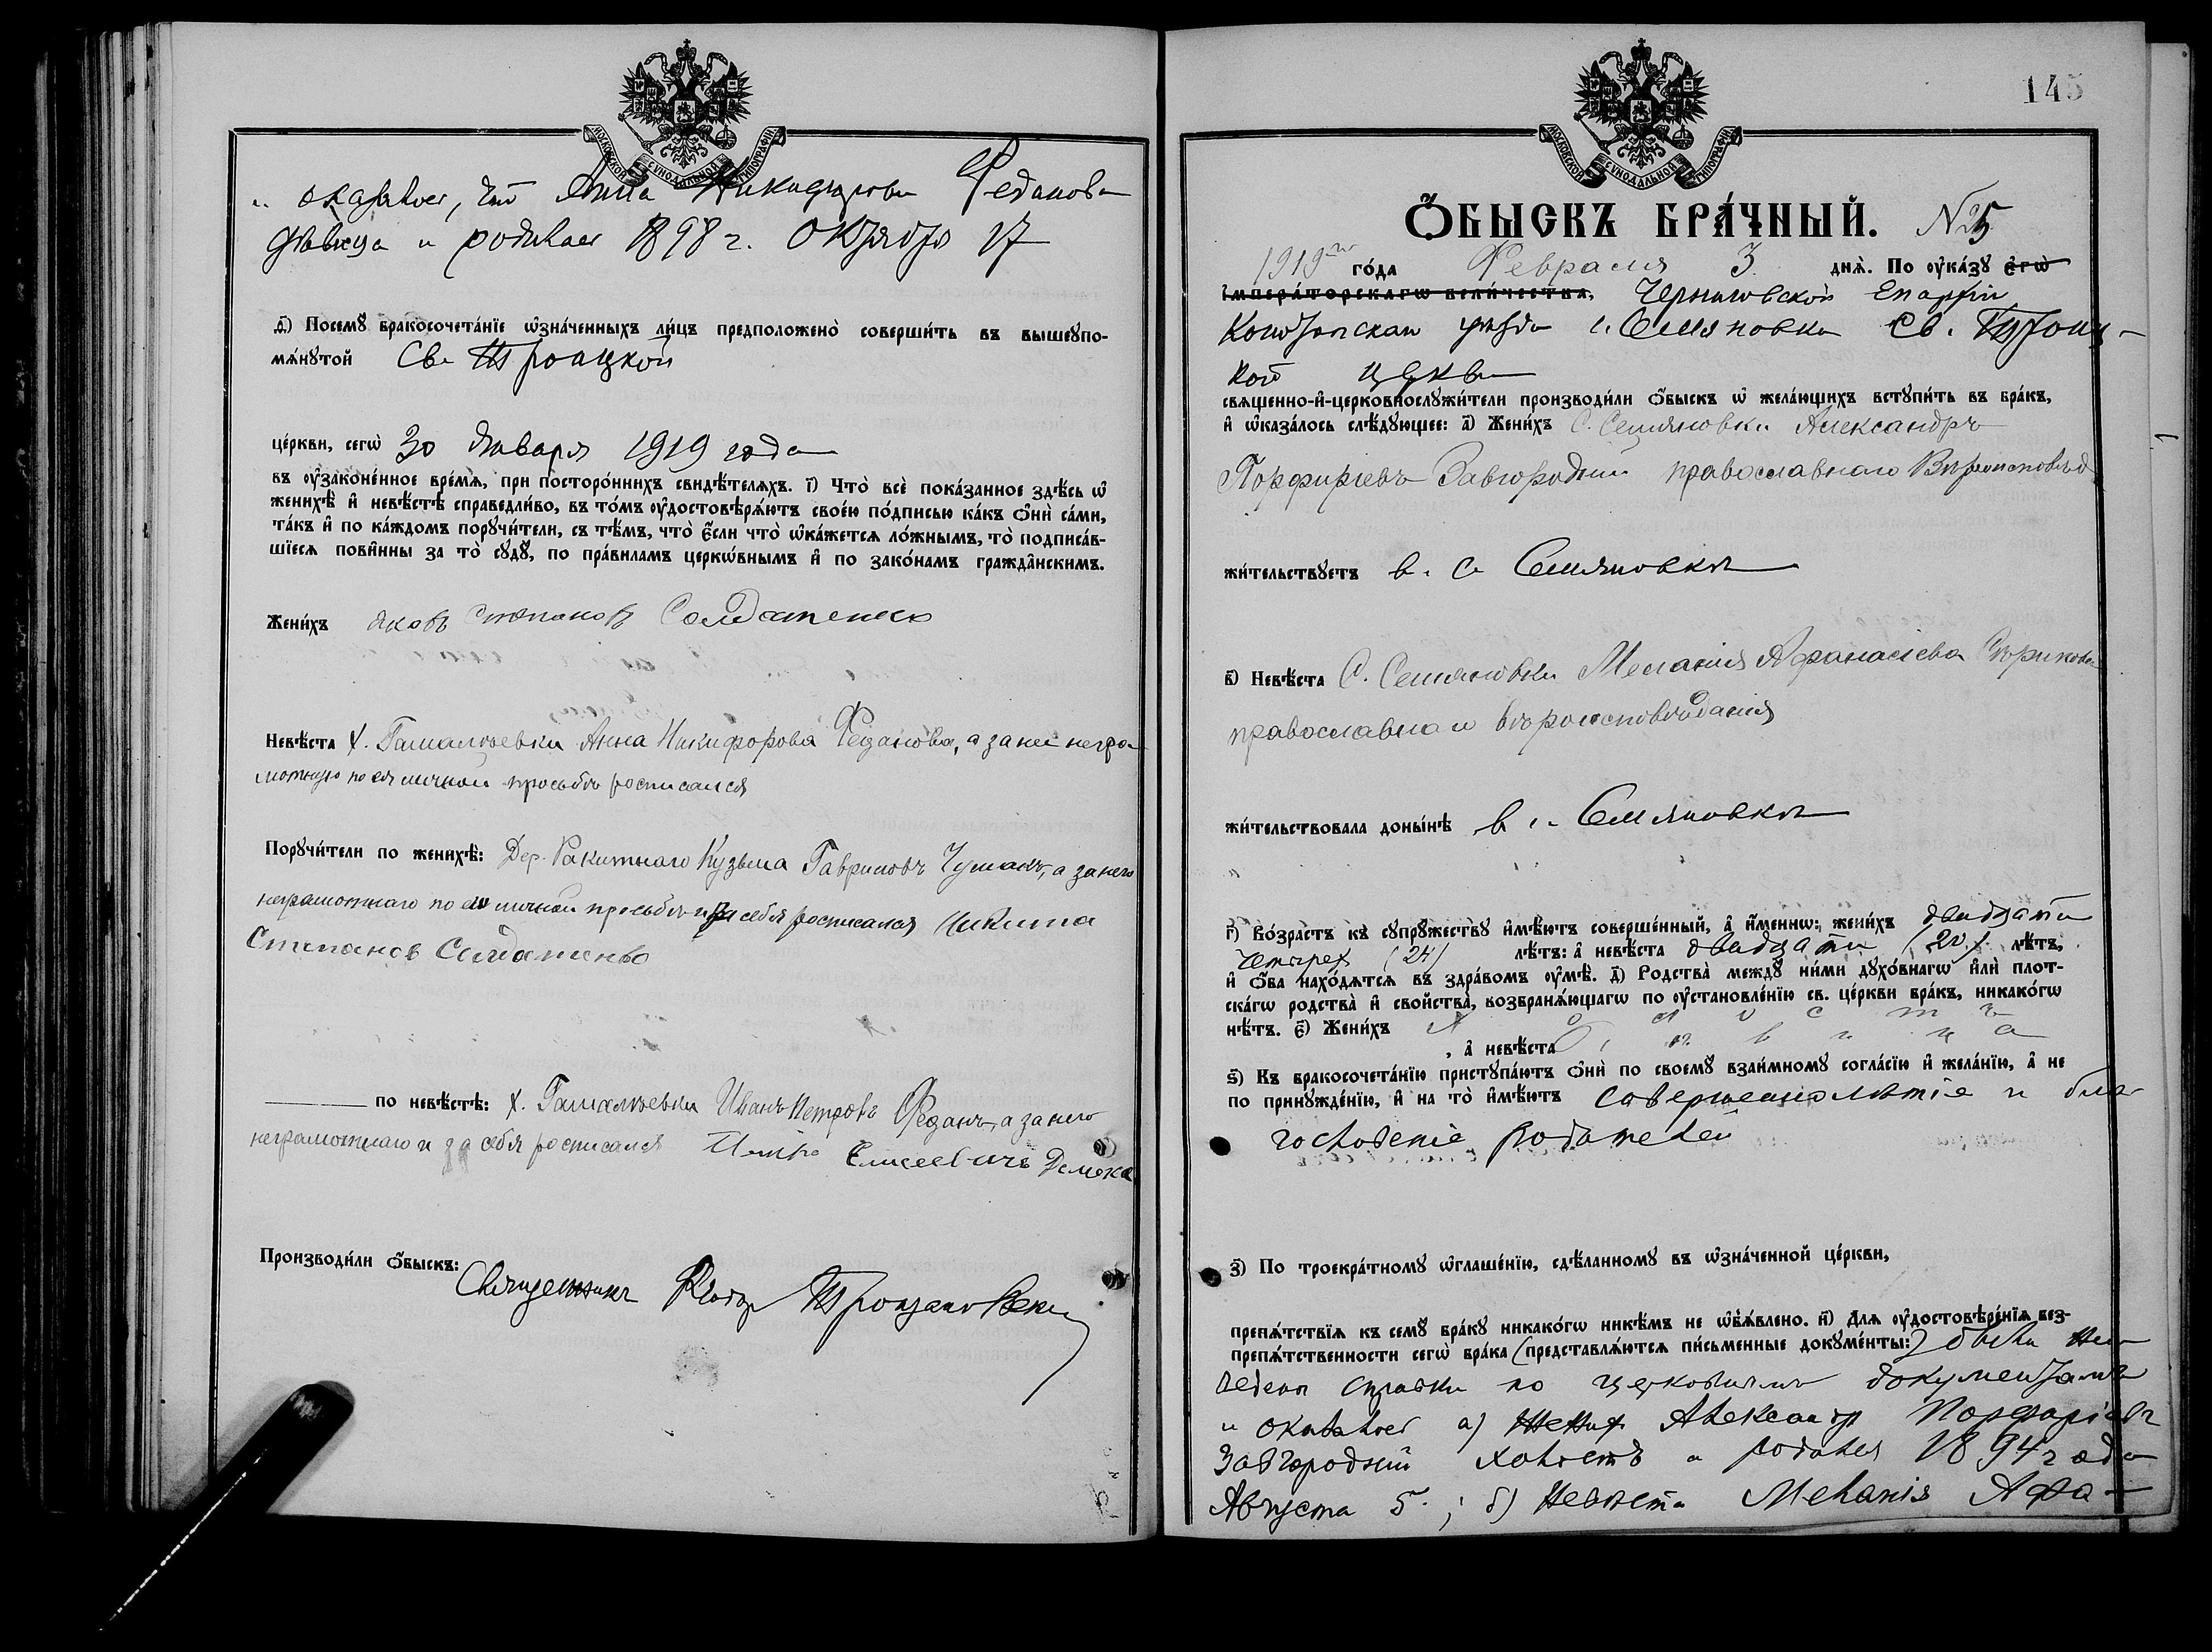 МОСКОВСКОЙ СУНОДАЛЬНОЙ ТИПОГРАФІИ
и оказалось, что Анна Никифорова Феданова
дѣвица и родилась 1898 г. Октября 17
д҃і) Посемꙋ бракосочета́нїе ѡ҆зна́ченныхъ ли́цъ предположено̀ соверши́ть въ вышеꙋпо-
мѧ́нꙋтой Св. Троицкой
це́ркви, сегѡ̀ 30 Января 1919 года
въ ᲂу҆зако́не́нное вре́мѧ, при посторо́ннихъ свидѣ́телѧхъ. і҃) Что̀ всѐ пока́занное здѣ́сь ѡ҆
женихѣ̀ и҆ невѣ́стѣ справедли́во, въ то́мъ ᲂу҆достовѣрѧ́ютъ свое́ю по́дписью ка́къ ѻ҆нѝ са́ми,
та́къ и҆ по ка́ждомъ порꙋчи́тели, съ тѣ́мъ, что̀ є҆́сли что̀ ѡ҆ка́жетсѧ ло́жнымъ, то̀ подписа́в-
шїесѧ пови́нны за то̀ сꙋдꙋ̀, по пра́виламъ церкѡ́внымъ и҆ по зако́намъ гражда̂нскимъ.
Жени́хъ Яковъ Степановъ Солдатенко
Невѣ́ста х. Гамалѣевки Анна Никифорова Феданова, а за нее негра-
мотную по ея личной просьбѣ росписался
Порꙋчи́тели по женихѣ̀: Дер. Ракитнаго Кузьма Гавриловъ Чумакъ, а за него
неграмотнаго по его личной просьбѣ и за себя росписался Никита
Степанов Солдатенко
по невѣ́стѣ: х. Гамалѣевки Иванъ Петровъ Феданъ, а за него
неграмотнаго и за себя росписался Елисеевичъ
Производи́ли ѻ҆́быскъ: Священникъ
145
МОСКОВСКОЙ СУНОДАЛЬНОЙ ТИПОГРАФІИ
Ѻ҆́БЫСКЪ БРА́ЧНЫЙ. N 25
1919 го́да Февраля 3 днѧ̀. По ᲂу҆ка́зꙋ є҆гѡ̀
і҆мпера́торскагѡ вели́чества, Черниговской Епархіи
Конотопскаго уѣзда с. Семяновки Св. Троиц-
кой церкви
свѧще́нно-и҆-церковнослꙋжи́тели производи́ли ѻ҆́быскъ ѡ҆ жела́ющихъ встꙋпи́ть въ бра́къ,
и҆ ѡ҆каза́лось слѣ́дꙋющее: а҃) Жени́хъ С. Семяновки Александръ
Порфиріевъ Завгородній православнаго Вѣроисповѣд
жи́тельствꙋетъ в с. Семяновкѣ
в҃) Невѣ́ста С. Семяновки Меланія Афанасіева
православнаго вѣроисповѣданія
жи́тельствовала доны́нѣ в с. Семяновкѣ
г҃) Во́зрастъ къ сꙋпрꙋ́жествꙋ и҆мѣ́ютъ соверше́нный, а҆ и҆́меннѡ: жени́хъ двадцати
четырех (24) лѣ́тъ: а҆ невѣ́ста двадцати (20) лѣ́тъ,
и҆ ѻ҆́ба нахо́дѧтсѧ въ здра́вомъ ᲂу҆мѣ̀. д҃) Родства̀ междꙋ̀ ни́ми дꙋхо́внагѡ и҆лѝ плот-
ска́гѡ родства̀ и҆ свойства̀, возбранѧ́ющагѡ по ᲂу҆становле́нїю св. це́ркви бра́къ, никако́гѡ
нѣ́тъ. є҃) Жени́хъ холостъ
, а҆ невѣ́ста дѣвица
ѕ҃) Къ бракосочета́нїю пристꙋпа́ютъ ѻ҆нѝ по своемꙋ̀ взаи́мномꙋ согла́сїю и҆ жела́нїю, а҆ не
по принꙋжде́нїю, и҆ на то̀ и҆мѣ́ютъ совершеннолѣтіе и бла-
гословеніе родителей
з҃) По троекра́тномꙋ ѡ҆глаше́нїю, сдѣ́ланномꙋ въ ѡ҆зна́ченной це́ркви,
препѧ́тствїѧ къ семꙋ̀ бра́кꙋ никако́гѡ никѣ́мъ не ѡ҆б̾ѧ́влено. и҃) Длѧ ᲂу҆достовѣре́нїѧ без-
препѧ́тственности сегѡ̀ бра́ка (представлѧ́ютсѧ пи́сьменные докꙋме́нты:) были на-
ведены справки по церковнымъ документамъ
и оказалось а) Жених Александр Порфиріевъ
Завгородній холостъ и родился 1894 года
Августа 5; б) Невѣста Меланія Афа-